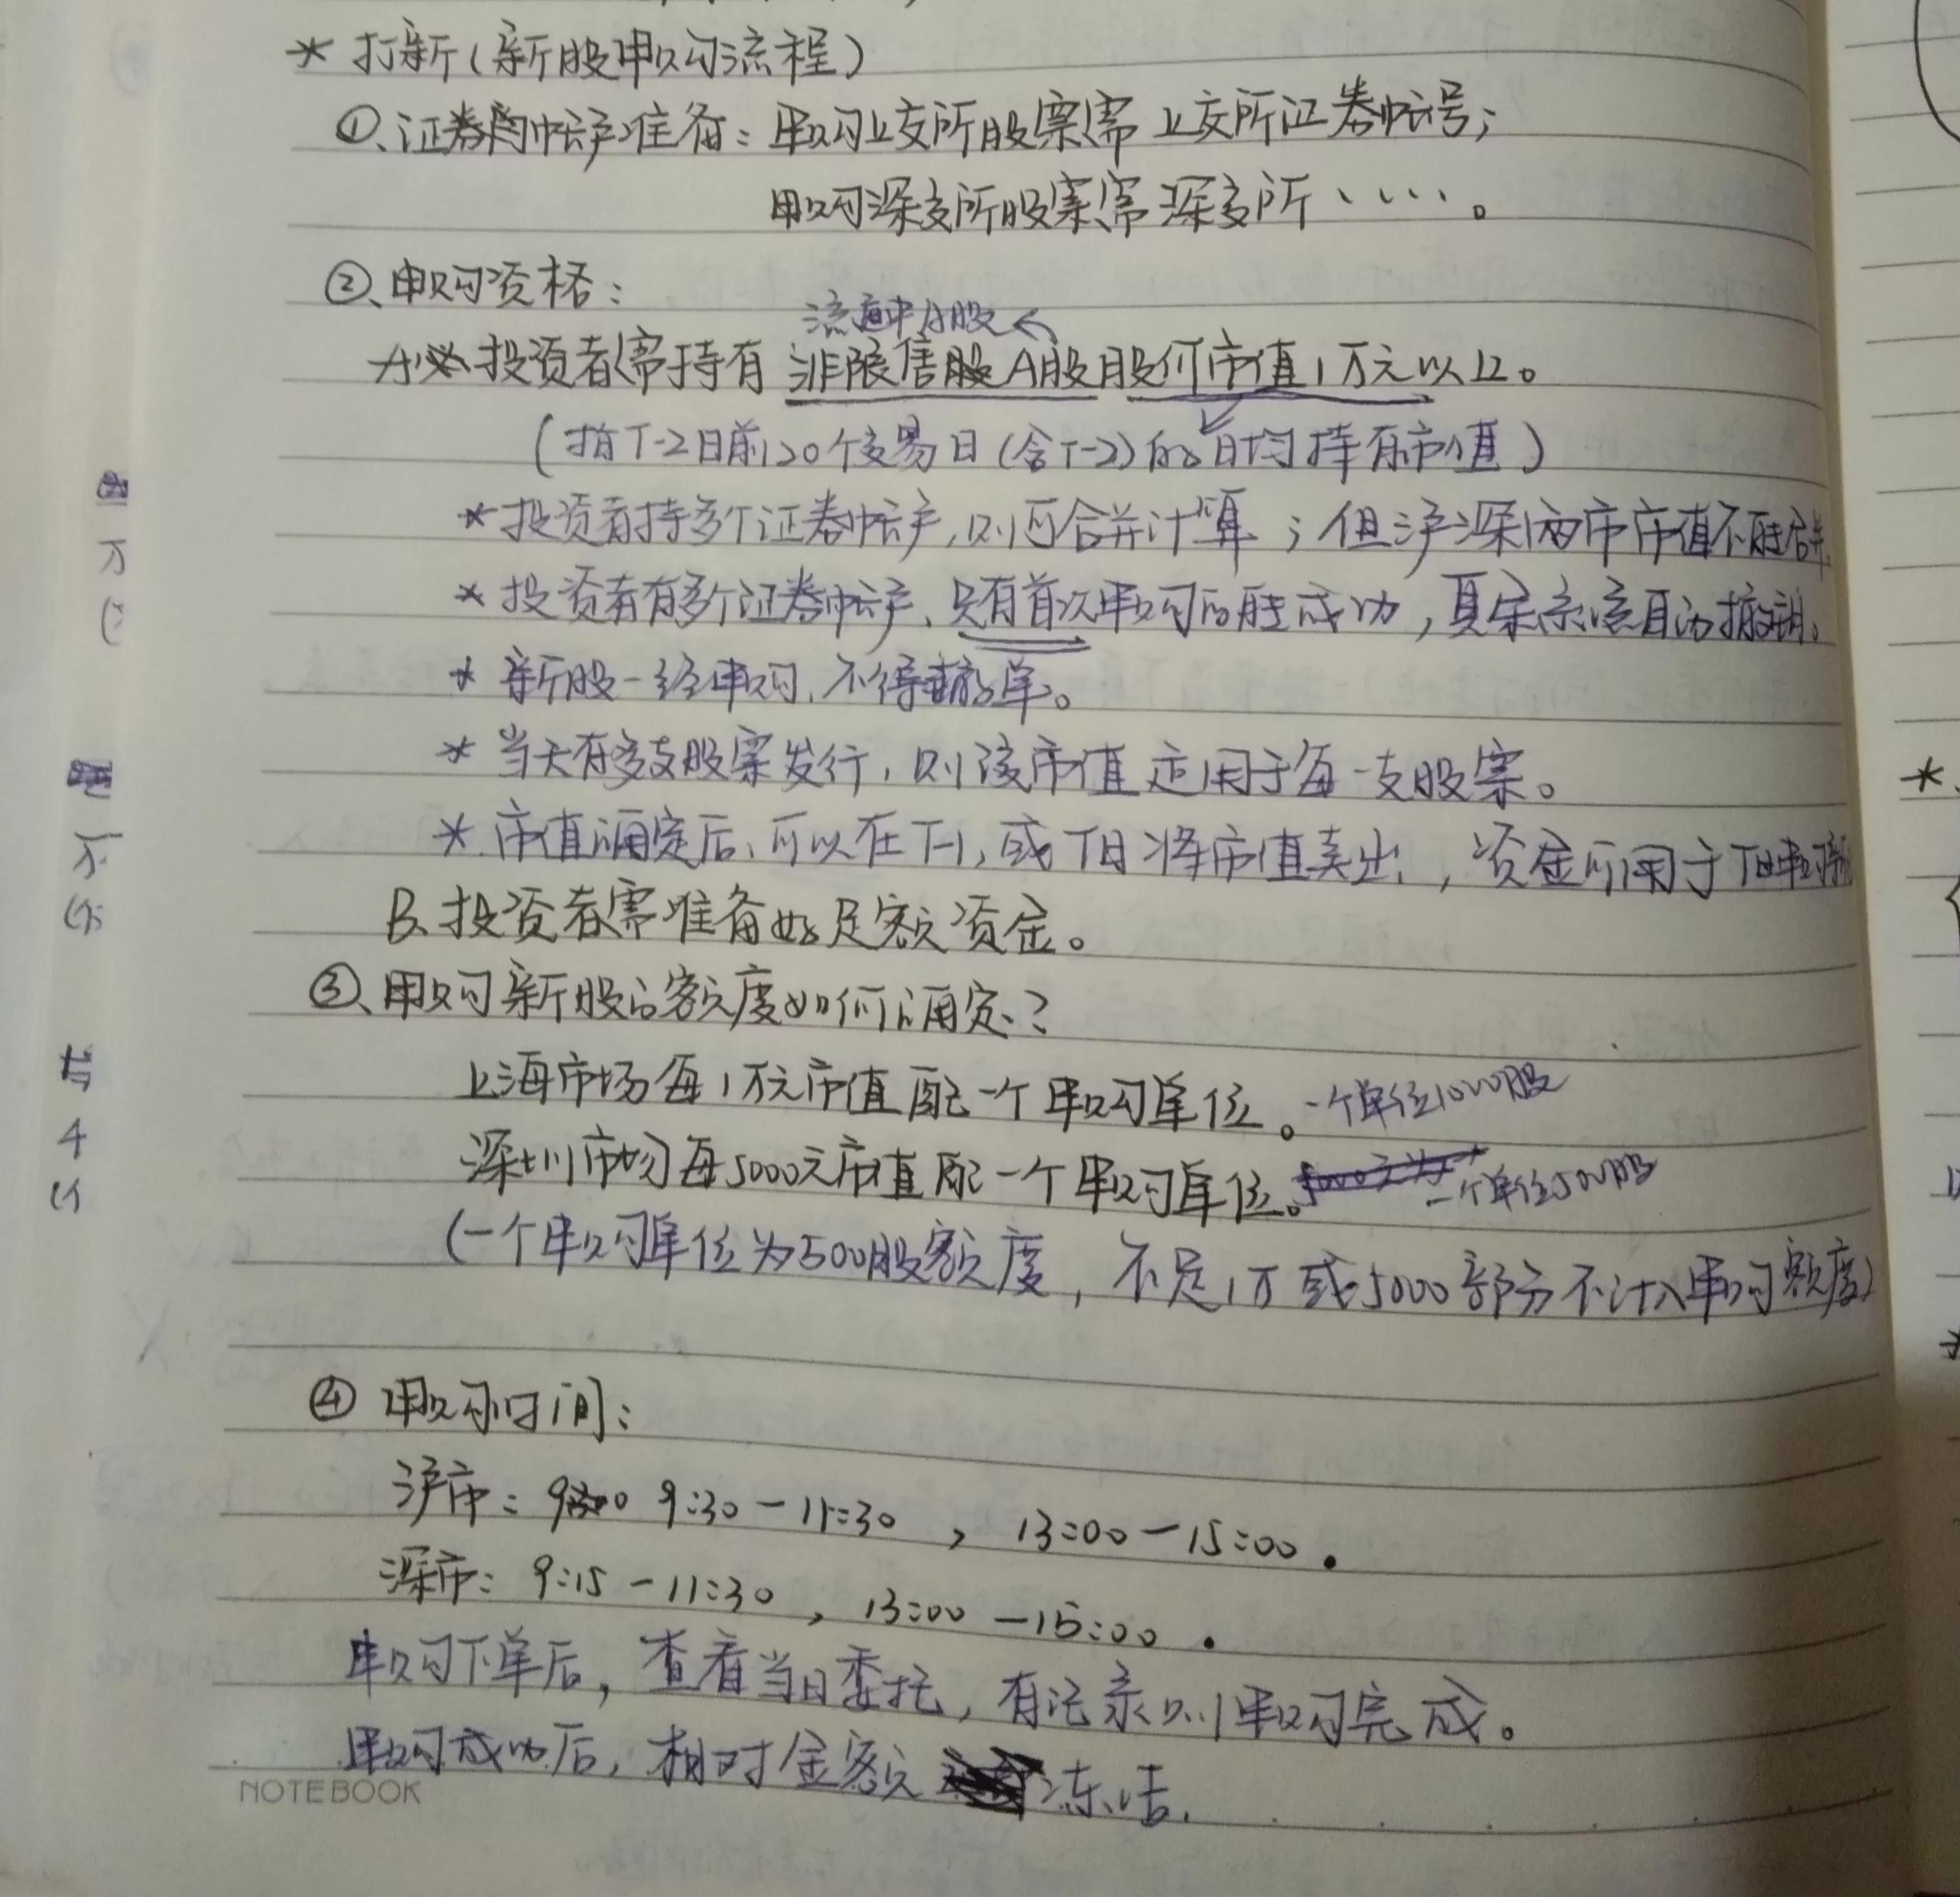 * 打新(新股申购流程)
①、证券帐户准备: 申购上交所股票需上交所证券帐号;
申购深交所股票需深交所、….。
②、申购资格:
流通中A股
A. 投资者需持有非限售股A股股份市值1万元以上。
(指T-2日前20个交易日(含T-2)的日均持有市值)
* 投资者持多个证券帐户,则可合并计算;但沪深两市市值不能合并.
* 投资者有多个证券帐户、只有首次申购可能成功,其余系统自动撤销。
* 新股一经申购,不得撤单。
* 当天有多支股票发行,则该市值适用于每一支股票。
* 市值确定后、可以在T-1,或T日将市值卖出,资金可用于T日申购新
B. 投资者需准备好足额资金。
③、申购新股的额度如何确定?
上海市场每1万元市值配一个申购单位。一个单位1000股
深圳市场每5000元市值配一个申购单位。一个单位500股
(一个申购单位为500股额度,不足1万或5000部分不计入申购额度)
④ 申购时间:
沪市: 9:30-11:30 , 13:00-15:00.
深市: 9:15-11:30 , 13:00-15:00.
申购下单后,查看当日委托,有记录则申购完成。
申购成功后,相对金额冻结.
NOTEBOOK